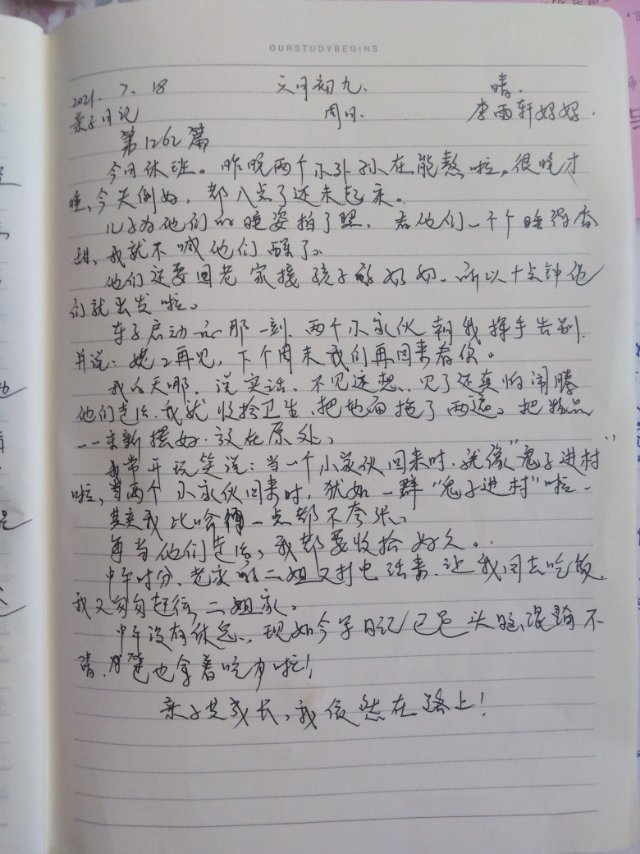 OURSTUDYBEGINS
2021. 7. 18 六月初九. 晴.
亲子日记 周日. 李雨轩奶奶.
第1262篇
今日休班。昨晚两个小外孙在能熬啦。很晚才
睡,今天倒好,都八点了还未起床。
儿子为他们的睡姿拍了照,看他们一个个睡得香
甜、我就不喊他们醒了。
他们还要回老家接孩子的奶奶.所以十点钟他
们就出发啦。
车子启动的那一刻.两个小家伙朝我挥手告别.
并说:姥姥再见,下个周末我们再回来看你。
我的天哪.说实话.不见还想.见了还真怕闹腾
他们走后.我就收拾卫生,把地面拖了两遍。把物品
一一重新摆好.放在原处。
我常开玩笑说:当一个小家伙回来时.就像"鬼子进村"
啦,当两个小家伙回来时,犹如一群"鬼子进村"啦.
其实我比喻得一点都不夸张。
每当他们走后,我都要收拾好久。
中午时分.老家的二姐又打电话来.让我回去吃饭.
我又匆匆赶往,二姐家。
中午没有休息.现如今写日记已是头脑混
,笔也拿着吃力啦!
亲子共成长,我依然在路上!